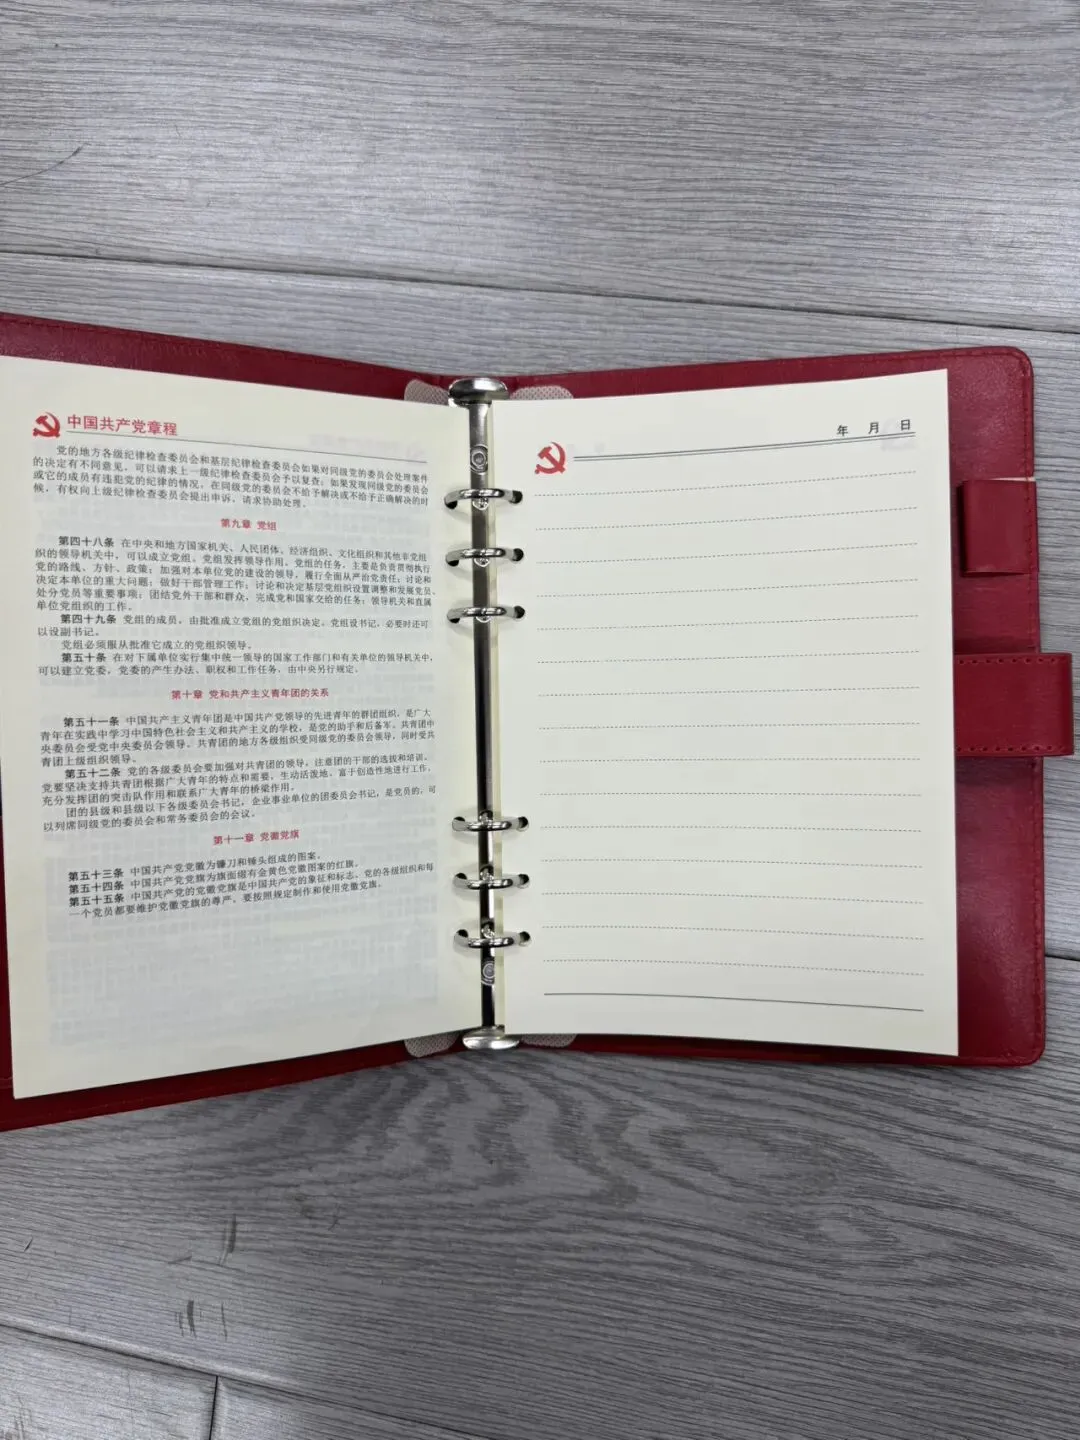 中国共产党章程
党的地方各级纪律检查委员会和基层纪律检查委员会如果对同级党的委员会处理案件
的决定有不同意见，可以请求上一级纪律检查委员会予以复查；如果发现同级党的委员会
或它的成员有违犯党的纪律的情况，在同级党的委员会不给予解决或不给予正确解决的时
候，有权向上级纪律检查委员会提出申诉，请求协助处理。
第九章 党组
第四十八条 在中央和地方国家机关、人民团体、经济组织、文化组织和其他非党组
织的领导机关中，可以成立党组。党组发挥领导作用。党组的任务，主要是负责贯彻执行
党的路线、方针、政策；加强对本单位党的建设的领导，履行全面从严治党责任；讨论和
决定本单位的重大问题；做好干部管理工作；讨论和决定基层党组织设置调整和发展党员、
处分党员等重要事项；团结党外干部和群众，完成党和国家交给的任务；领导机关和直属
单位党组织的工作。
第四十九条 党组的成员，由批准成立党组的党组织决定。党组设书记，必要时还可
以设副书记。
党组必须服从批准它成立的党组织领导。
第五十条 在对下属单位实行集中统一领导的国家工作部门和有关单位的领导机关中，
可以建立党委，党委的产生办法、职权和工作任务，由中央另行规定。
第十章 党和共产主义青年团的关系
第五十一条 中国共产主义青年团是中国共产党领导的先进青年的群团组织，是广大
青年在实践中学习中国特色社会主义和共产主义的学校，是党的助手和后备军。共青团中
央委员会受党中央委员会领导。共青团的地方各级组织受同级党的委员会领导，同时受共
青团上级组织领导。
第五十二条 党的各级委员会要加强对共青团的领导，注意团的干部的选拔和培训。
党要坚决支持共青团根据广大青年的特点和需要，生动活泼地、富于创造性地进行工作，
充分发挥团的突击队作用和联系广大青年的桥梁作用。
团的县级和县级以下各级委员会书记，企业事业单位的团委员会书记，是党员的，可
以列席同级党的委员会和常务委员会的会议。
第十一章 党徽党旗
第五十三条 中国共产党党徽为镰刀和锤头组成的图案。
第五十四条 中国共产党党旗为旗面缀有金黄色党徽图案的红旗。
第五十五条 中国共产党的党徽党旗是中国共产党的象征和标志。党的各级组织和每
一个党员都要维护党徽党旗的尊严。要按照规定制作和使用党徽党旗。
年 月 日